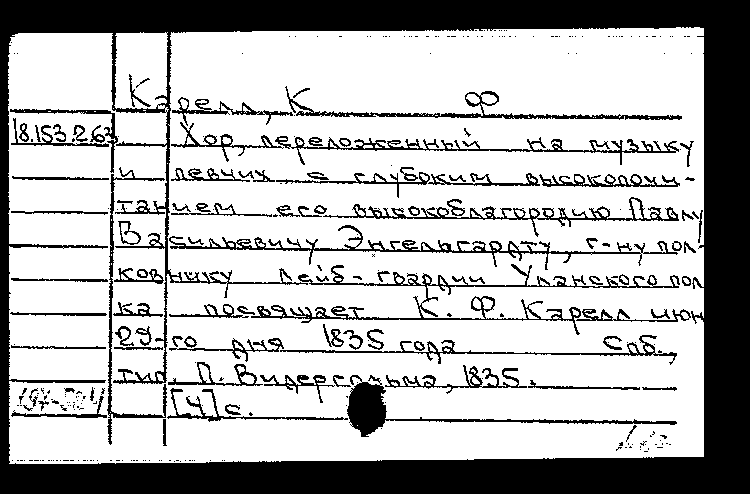 Карелл, К Ф
18.153.2.63 Хор, переложенный на музыку
и певчих с глубоким высокопочи-
танием его высокоблагородию Павлу
Васильевичу Энгельгардту, г-ну пол-
ковнику лейб-гвардии Уланского пол
ка посвящает К. Ф. Карелл июн
29-го дня 1835 года Спб.,
тип. П. Видергольма, 1835.
[4] с.